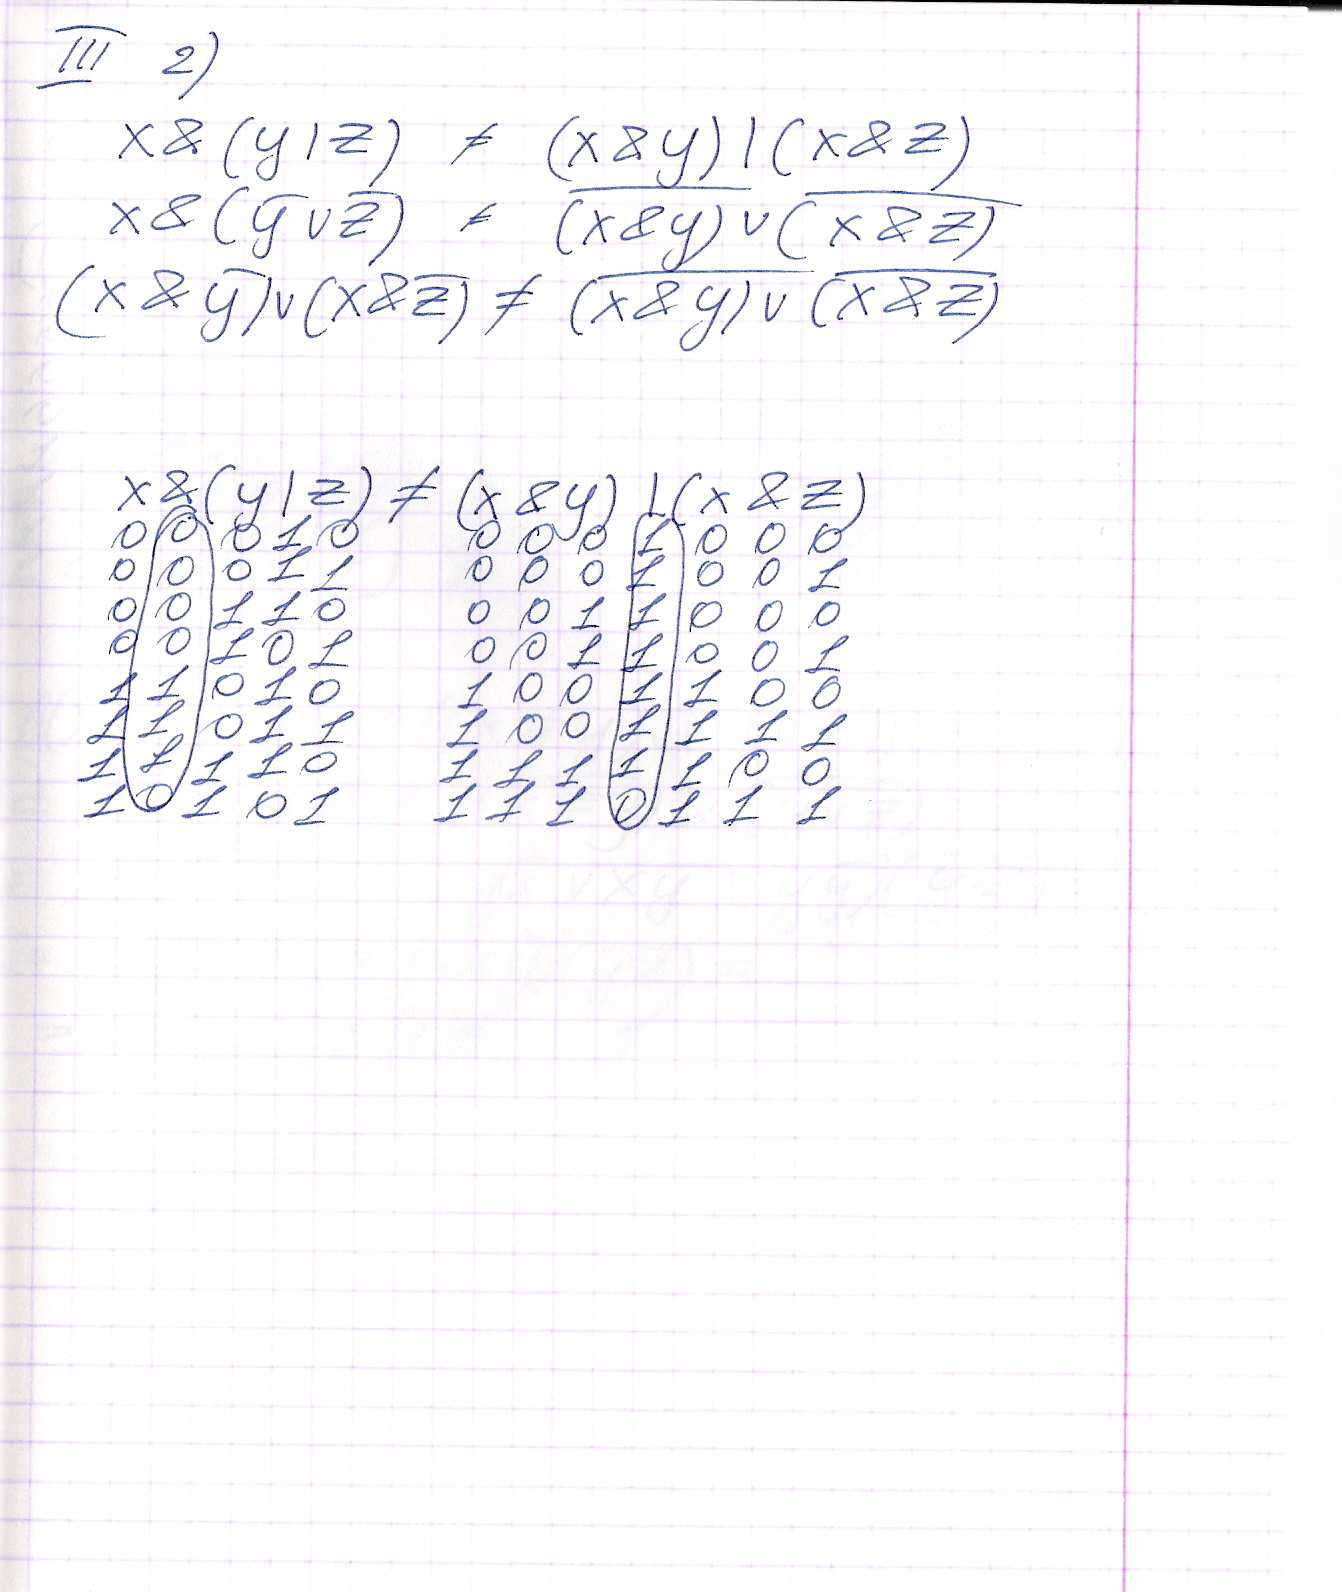 III 2)
x&(y|z) ≠ (x&y)|(x&z)
x&(y̅∨z̅) ≠ (x̅&̅y̅)∨(x̅&̅z̅)
(x&y̅)∨(x&z̅) ≠ (x̅&̅y̅)∨(x̅&̅z̅)
x&(y|z) ≠ (x&y)|(x&z)
0 0 0 1 0 0 0 0 1 0 0 0
0 0 0 1 1 0 0 0 1 0 0 1
0 0 1 1 0 0 0 1 1 0 0 0
0 0 1 0 1 0 0 1 1 0 0 1
1 1 0 1 0 1 0 0 1 1 0 0
1 1 0 1 1 1 0 0 1 1 1 1
1 1 1 1 0 1 1 1 1 1 0 0
1 0 1 0 1 1 1 1 0 1 1 1